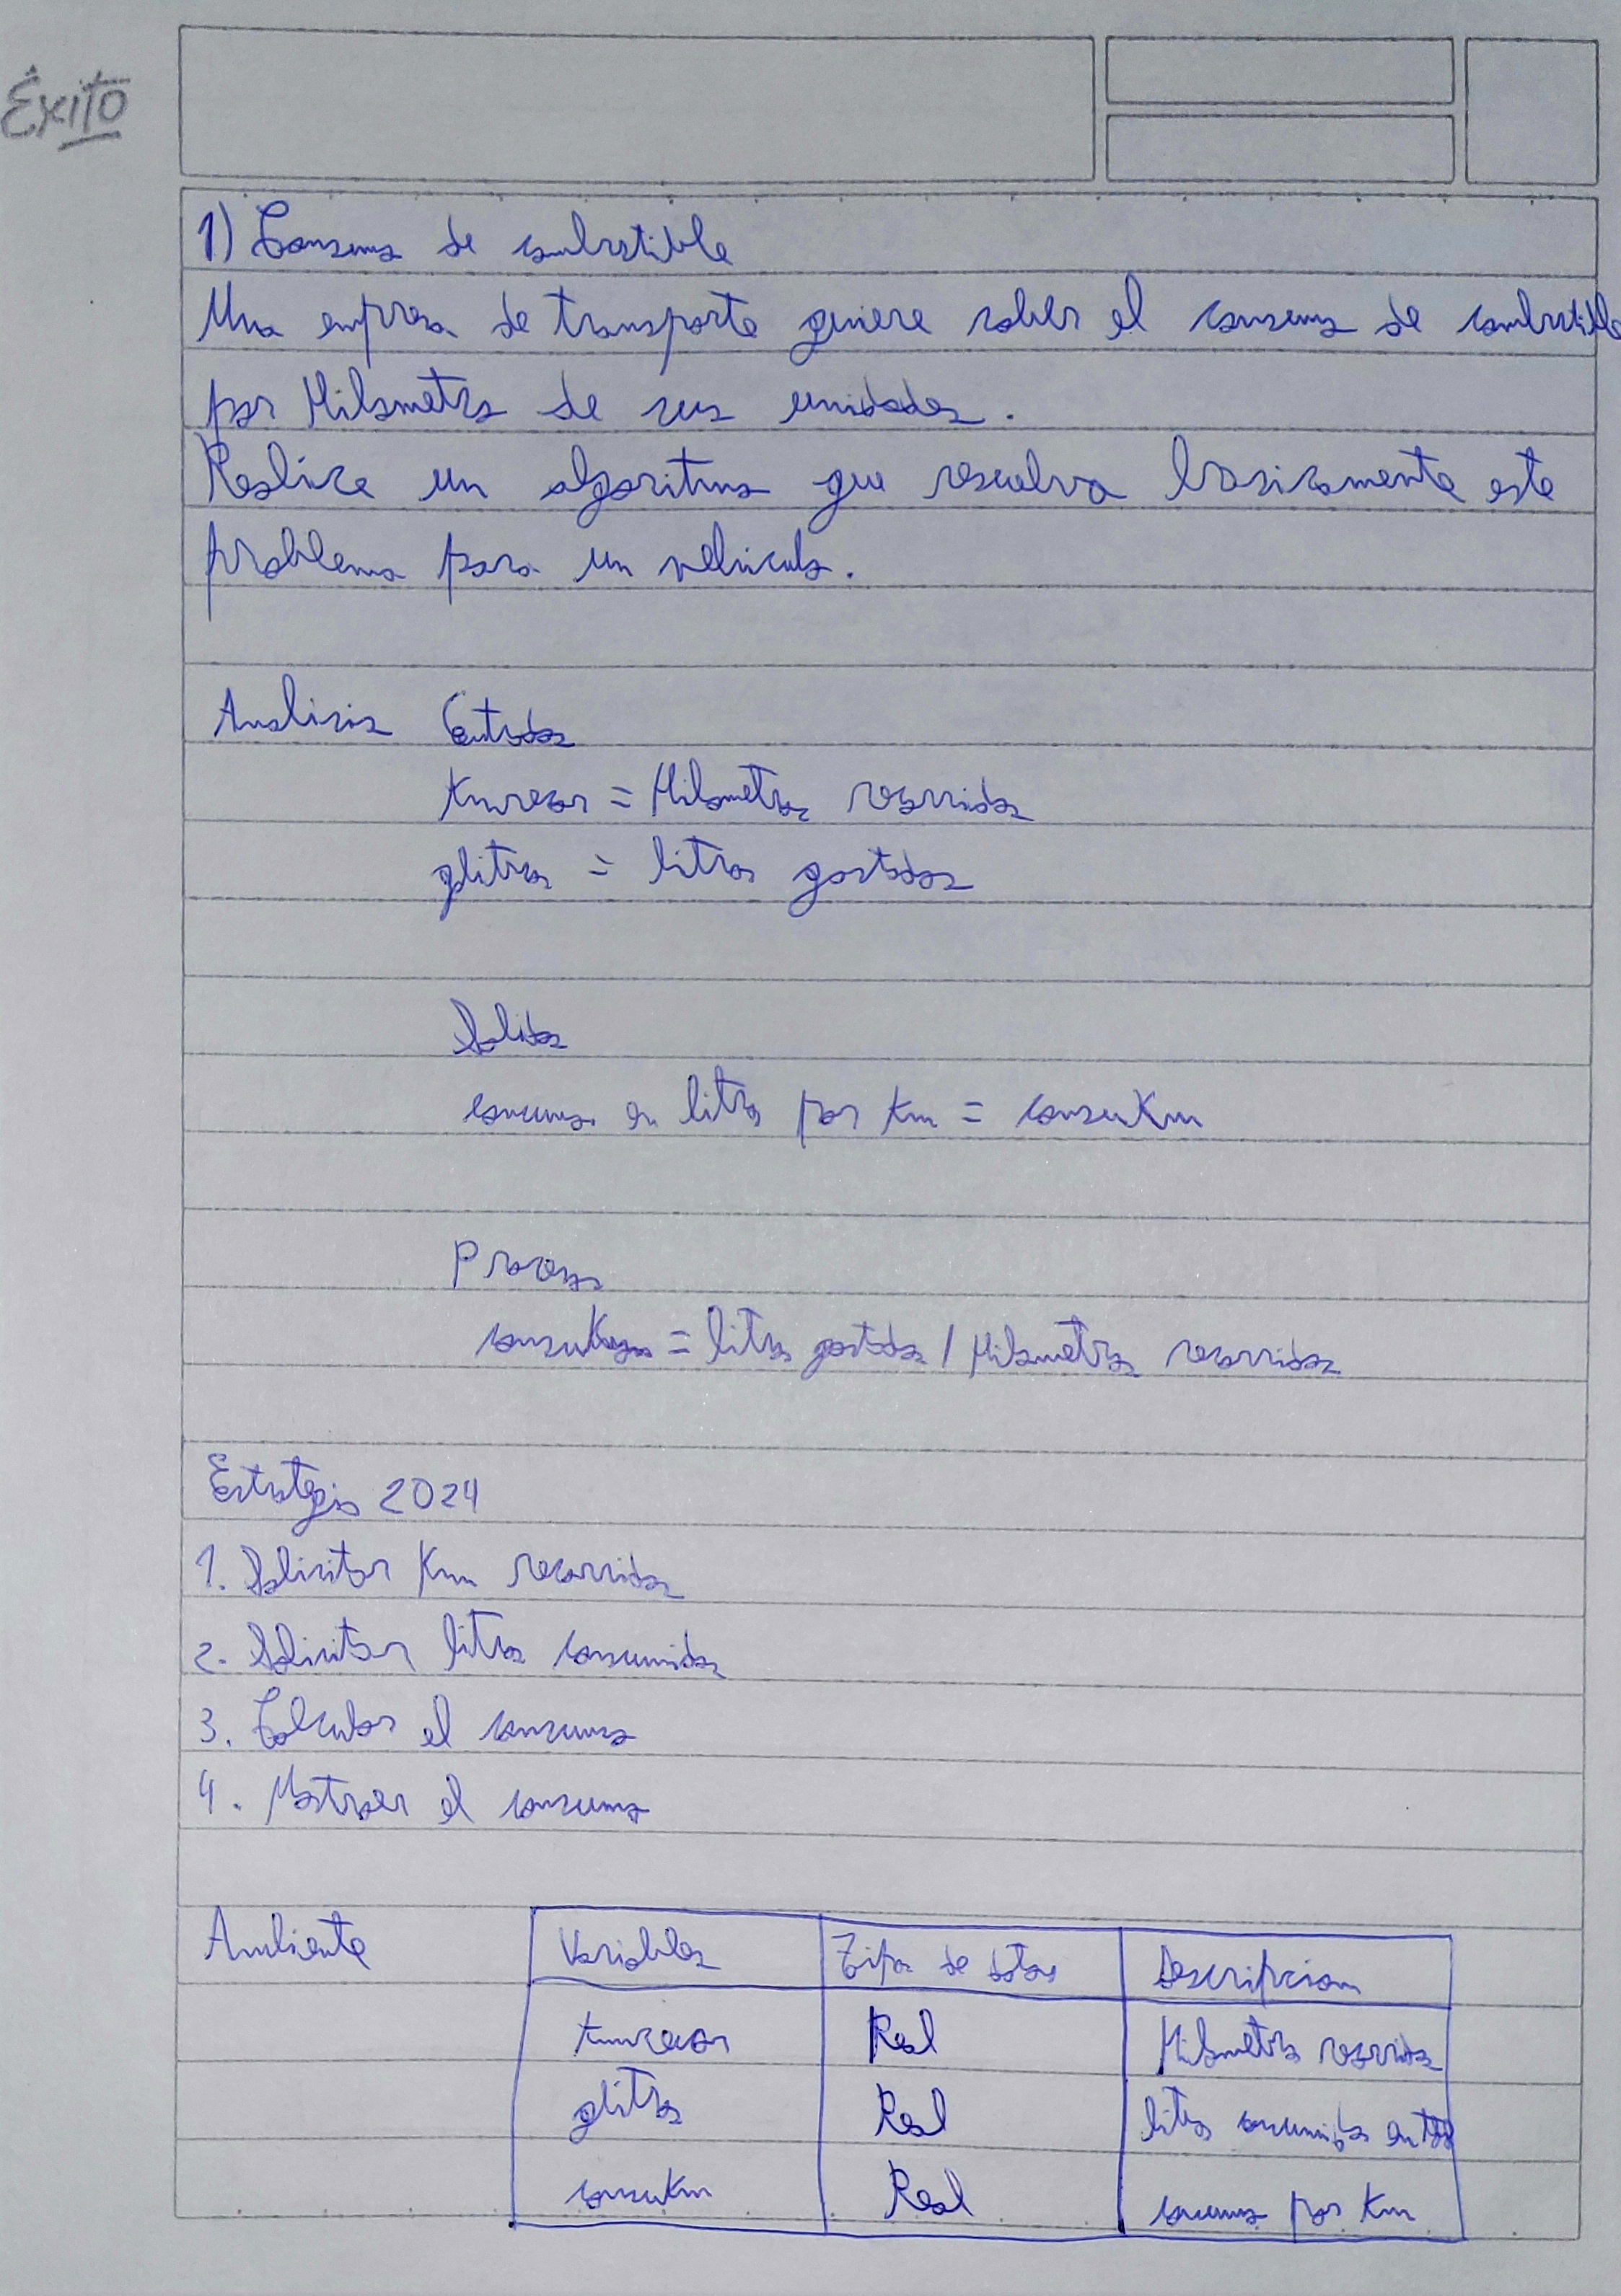 Éxito
1) Consumo de combustible
Una empresa de transporte quiere saber el consumo de combustible
por Kilometro de sus unidades.
Realice un algoritmo que resuelva basicamente este
problema para un vehiculo.
Analisis Entradas
Kmrecor = Kilometros recorridos
glitros = litros gastados
Salidas
consumo en litros por Km = consuKm
Proceso
consuKm = litros gastados / Kilometros recorridos
Estrategia 2024
1. Solicitar Km recorridos
2. Solicitar litros consumidos
3. Calcular el consumo
4. Mostrar el consumo
Ambiente Variables Tipo de datos Descripcion
Kmrecor Real Kilometros recorridos
glitros Real litros consumidos
consuKm Real consumo por Km